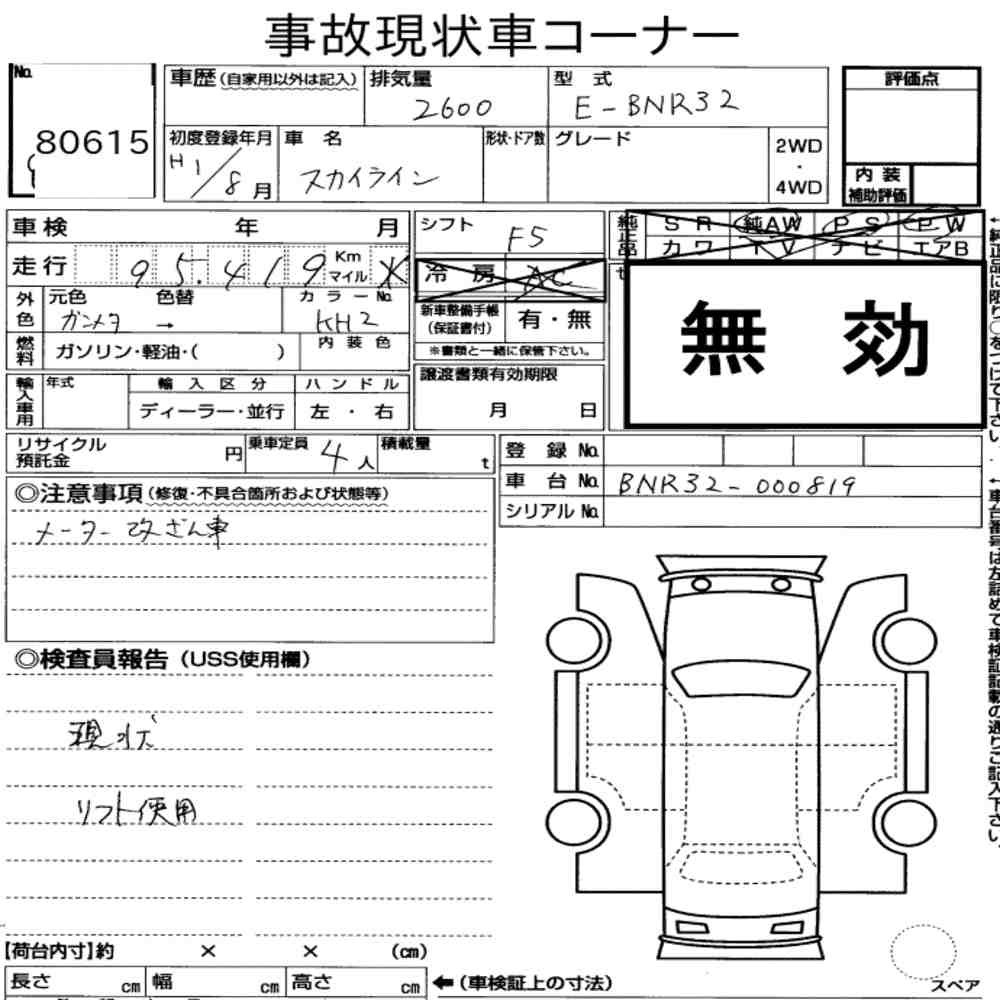 事故現状車コーナー
No. 80615
車歴(自家用以外は記入) 排気量 2600 型式 E-BNR32
評価点
初度登録年月 H1/8月 車名 スカイライン 形状・ドア数 グレード 2WD・4WD
内装補助評価
車検 年 月
シフト F5
純正品 SR 純AW PS PW
カワ TV ナビ エアB
走行 95,419 Km マイル
冷房 AC
無効
外色 元色 ガンメタ 色替 → カラーNo. KH2
新車整備手帳(保証書付) 有・無
※書類と一緒に保管下さい。
燃料 ガソリン・軽油・( ) 内装色
輸入車用 年式 輸入区分 ハンドル
ディーラー・並行 左・右
譲渡書類有効期限
月 日
リサイクル預託金 円 乗車定員 4人 積載量 t
登録No.
車台No. BNR32-000819
シリアルNo.
◎注意事項(修復・不具合箇所および状態等)
メーター改ざん車
◎検査員報告(USS使用欄)
現状
リフト使用
【荷台内寸】約 × × (cm)
長さ cm 幅 cm 高さ cm
←(車検証上の寸法)
スペア
←純正品に限り○をつけて下さい。
←車台番号は左詰めで車検証記載の通りご記入下さい。